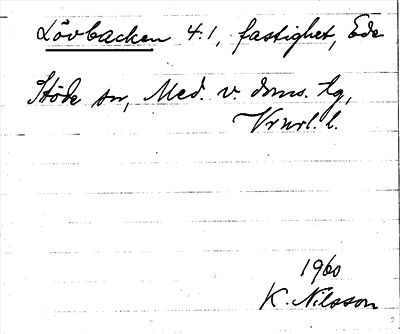 Lövbacken 4:1, fastighet, Ede
Stöde sn, Med. v. doms. tg,
Vrnrl. l.
1960
K. Nilsson